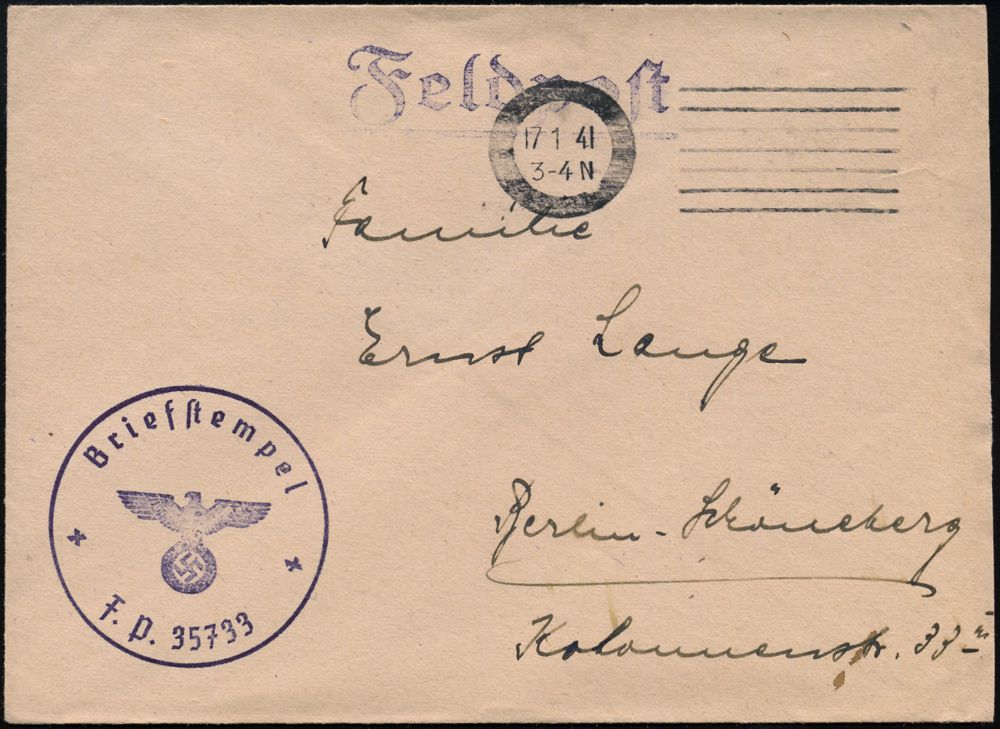 Feldpost
17 1 41
3-4 N
Familie
Ernst Lange
Briefstempel
F. P. 35733
Berlin-Schöneberg
Kolonnenstr. 33